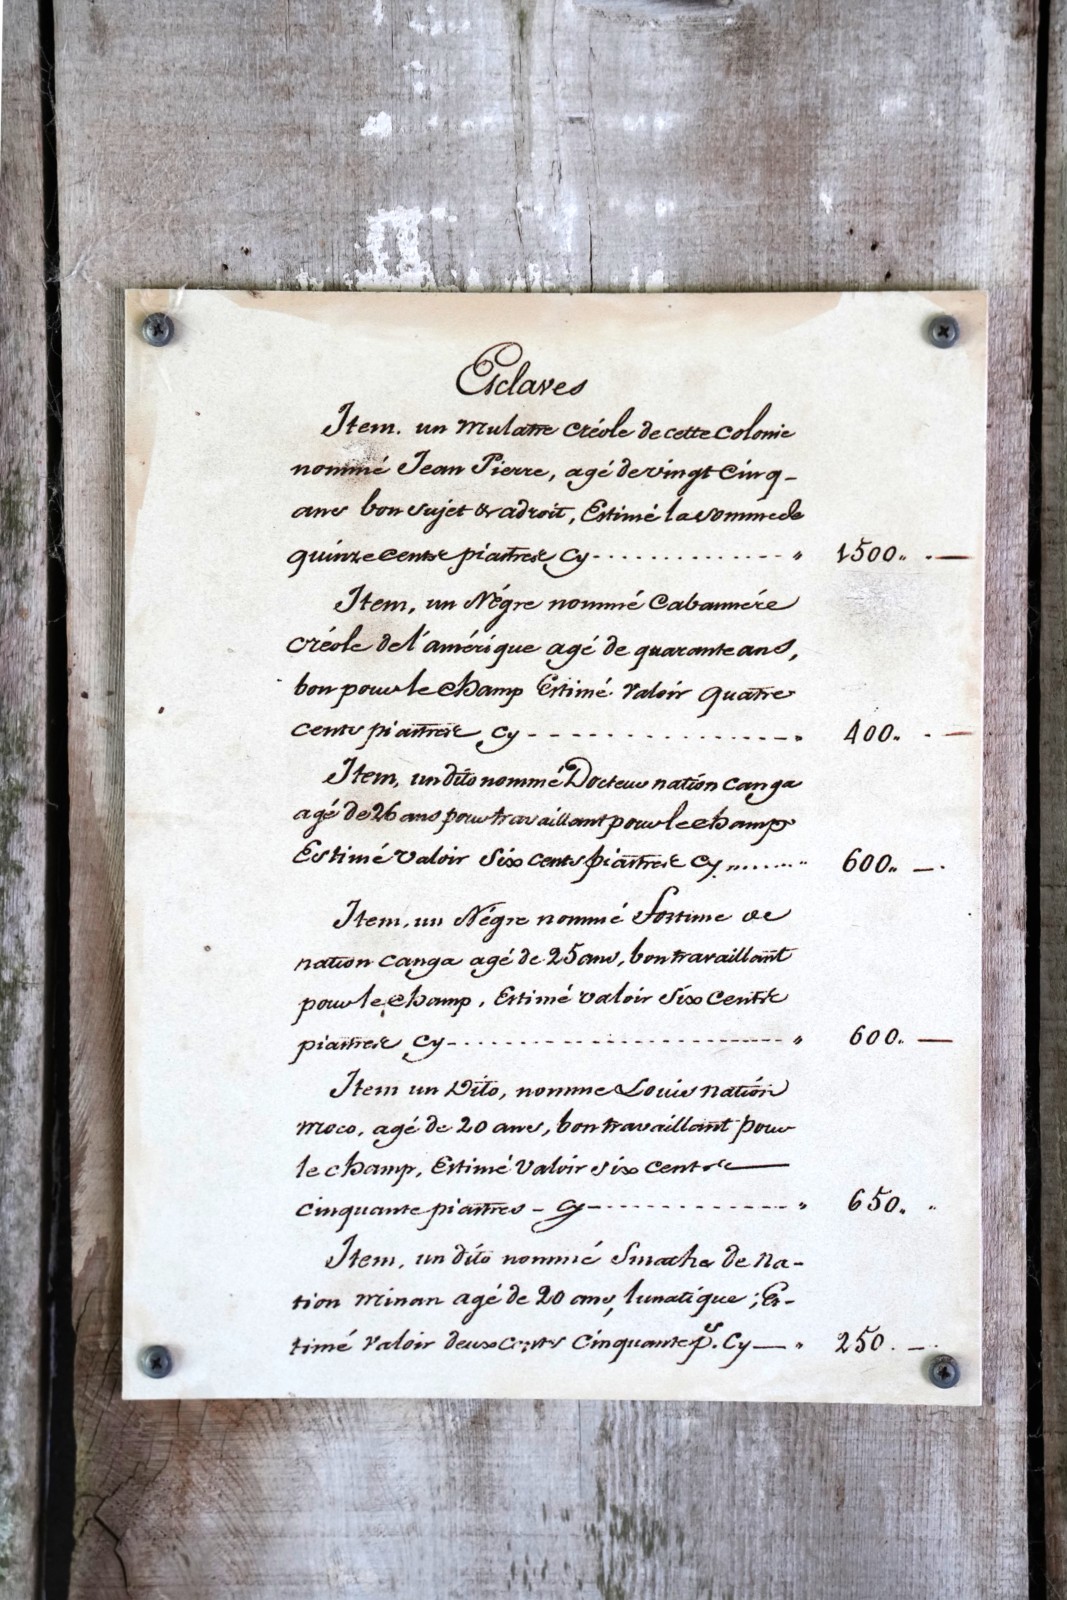 Esclaves
Item. un Mulatre créole de cette Colonie
nommé Jean Pierre, agé de vingt Cinq-
ans bon sujet & adroit, Estimé la somme de
quinze cents piastres Cy - - - - - - - - - - - " 1500.. . —
Item, un Négre nommé Cabannére
créole de l'amérique agé de quarante ans,
bon pour le champ Estimé valoir quatre
cents piastres Cy - - - - - - - - - - - " 400.. . —
Item, un dito nommé Docteur nation Canga
agé de 26 ans pour travaillant pour le champ
Estimé valoir six cents piastres Cy ........ " 600.. —.
Item, un Négre nommé Fortime de
nation canga agé de 25 ans, bon travaillant
pour le champ. Estimé valoir six Cents
piastres Cy - - - - - - - - - - - " 600.. —
Item un Dito, nomme Louis nation
moco, agé de 20 ans, bon travaillant pour
le champ, Estimé valoir six cents —
cinquante piastres - Cy - - - - - - - - - " 650. "
Item, un dito nommé de Na-
tion minan agé de 20 ans, lunatique ; Es-
timé valoir deux Cents Cinquante ps. Cy — " 250. —.